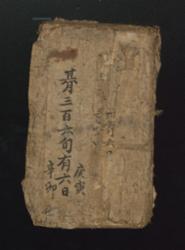 庚寅
朞三百六旬有六日
辛卯